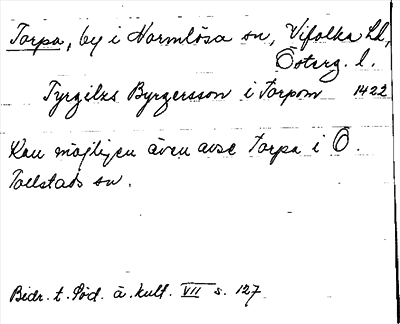 Torpa, by i Normlösa sn, Vifolka hd,
Österg. l.
Tyrgilxs Byrgersson i torpom 1422
Kan möjligen även avse torpa i Ö.
Tollstads sn.
Bidr. t. Söd. ä. kult. VII s. 127